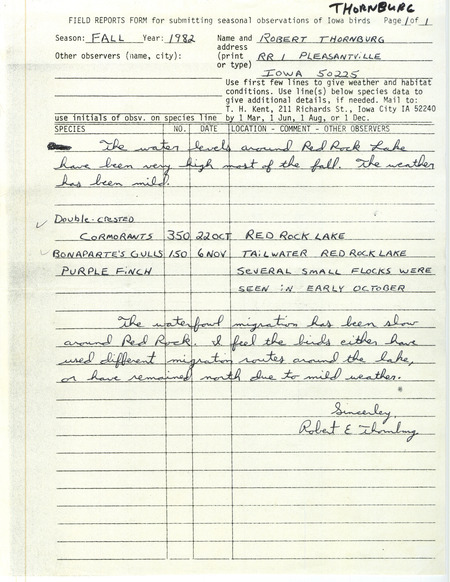 THORNBURG
FIELD REPORTS FORM for submitting seasonal observations of Iowa birds Page 1 of 1
Season: FALL Year: 1982 Name and ROBERT THORNBURG
address
Other observers (name, city): (print RR 1 PLEASANTVILLE
or type)
IOWA 50225
Use first few lines to give weather and habitat
conditions. Use line(s) below species data to
give additional details, if needed. Mail to:
T. H. Kent, 211 Richards St., Iowa City IA 52240
use initials of obsv. on species line by 1 Mar, 1 Jun, 1 Aug, or 1 Dec.
SPECIES NO. DATE LOCATION - COMMENT - OTHER OBSERVERS
The water levels around Red Rock Lake
have been very high most of the fall. The weather
has been mild.
Double-crested
CORMORANTS 350 22 OCT RED ROCK LAKE
BONAPARTE'S GULLS 150 6 NOV TAILWATER RED ROCK LAKE
PURPLE FINCH SEVERAL SMALL FLOCKS WERE
SEEN IN EARLY OCTOBER
The waterfowl migration has been slow
around Red Rock. I feel the birds either have
used different migration routes around the lake,
or have remained north due to mild weather.
Sincerley,
Robert E Thornburg